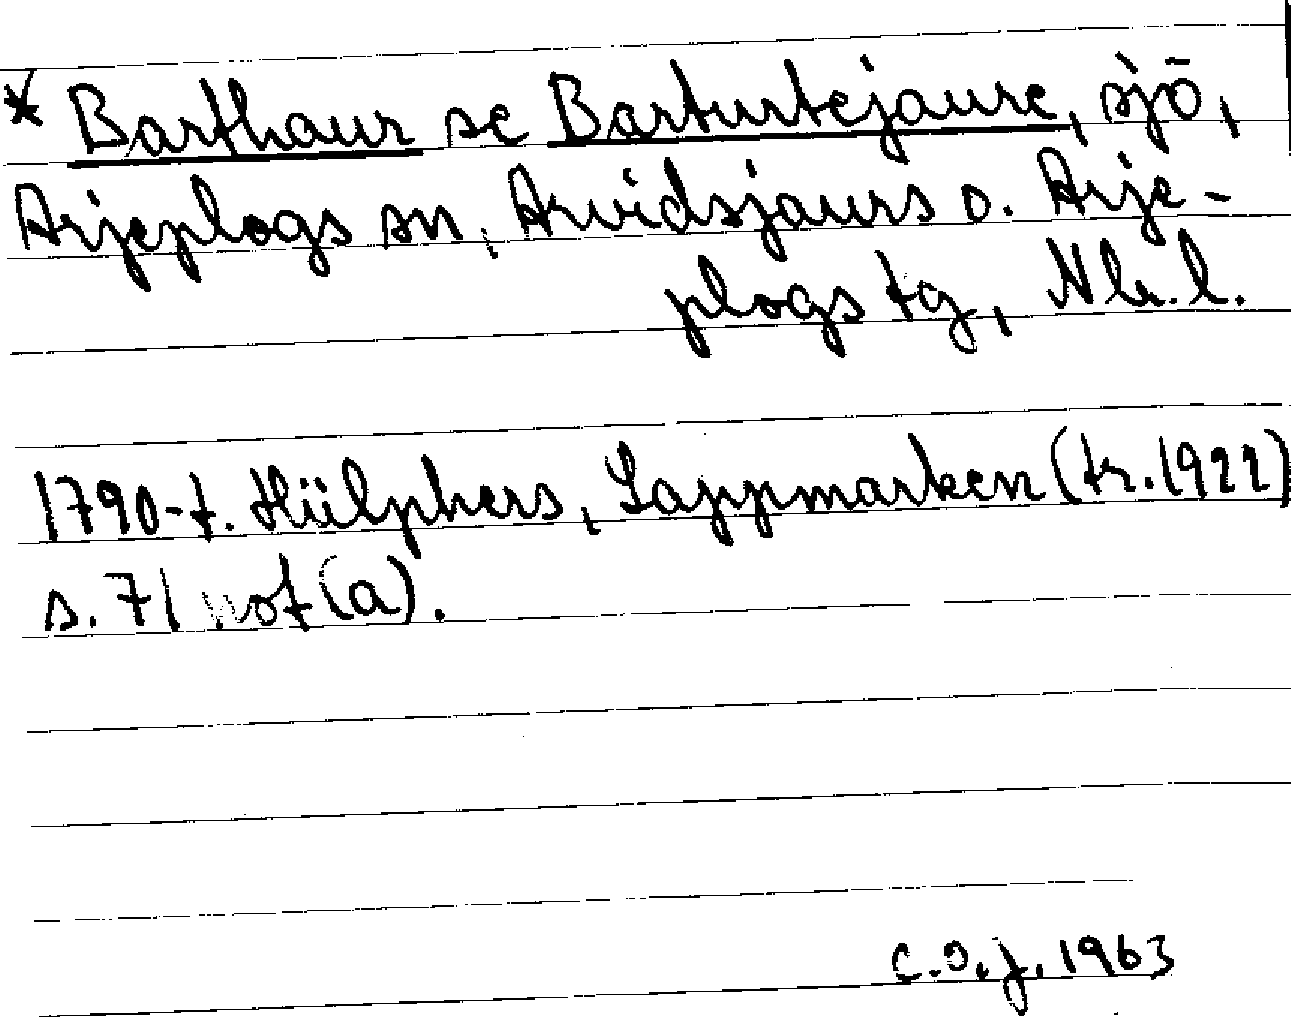 * Barthaur se Barturtejaure, sjö,
Arjeplogs sn, Arvidsjaurs o. Arje-
plogs tg, Nb. l.
1790-t. Hülphers, Lappmarken (tr. 1922)
s. 71 not (a).
C.O.J. 1963